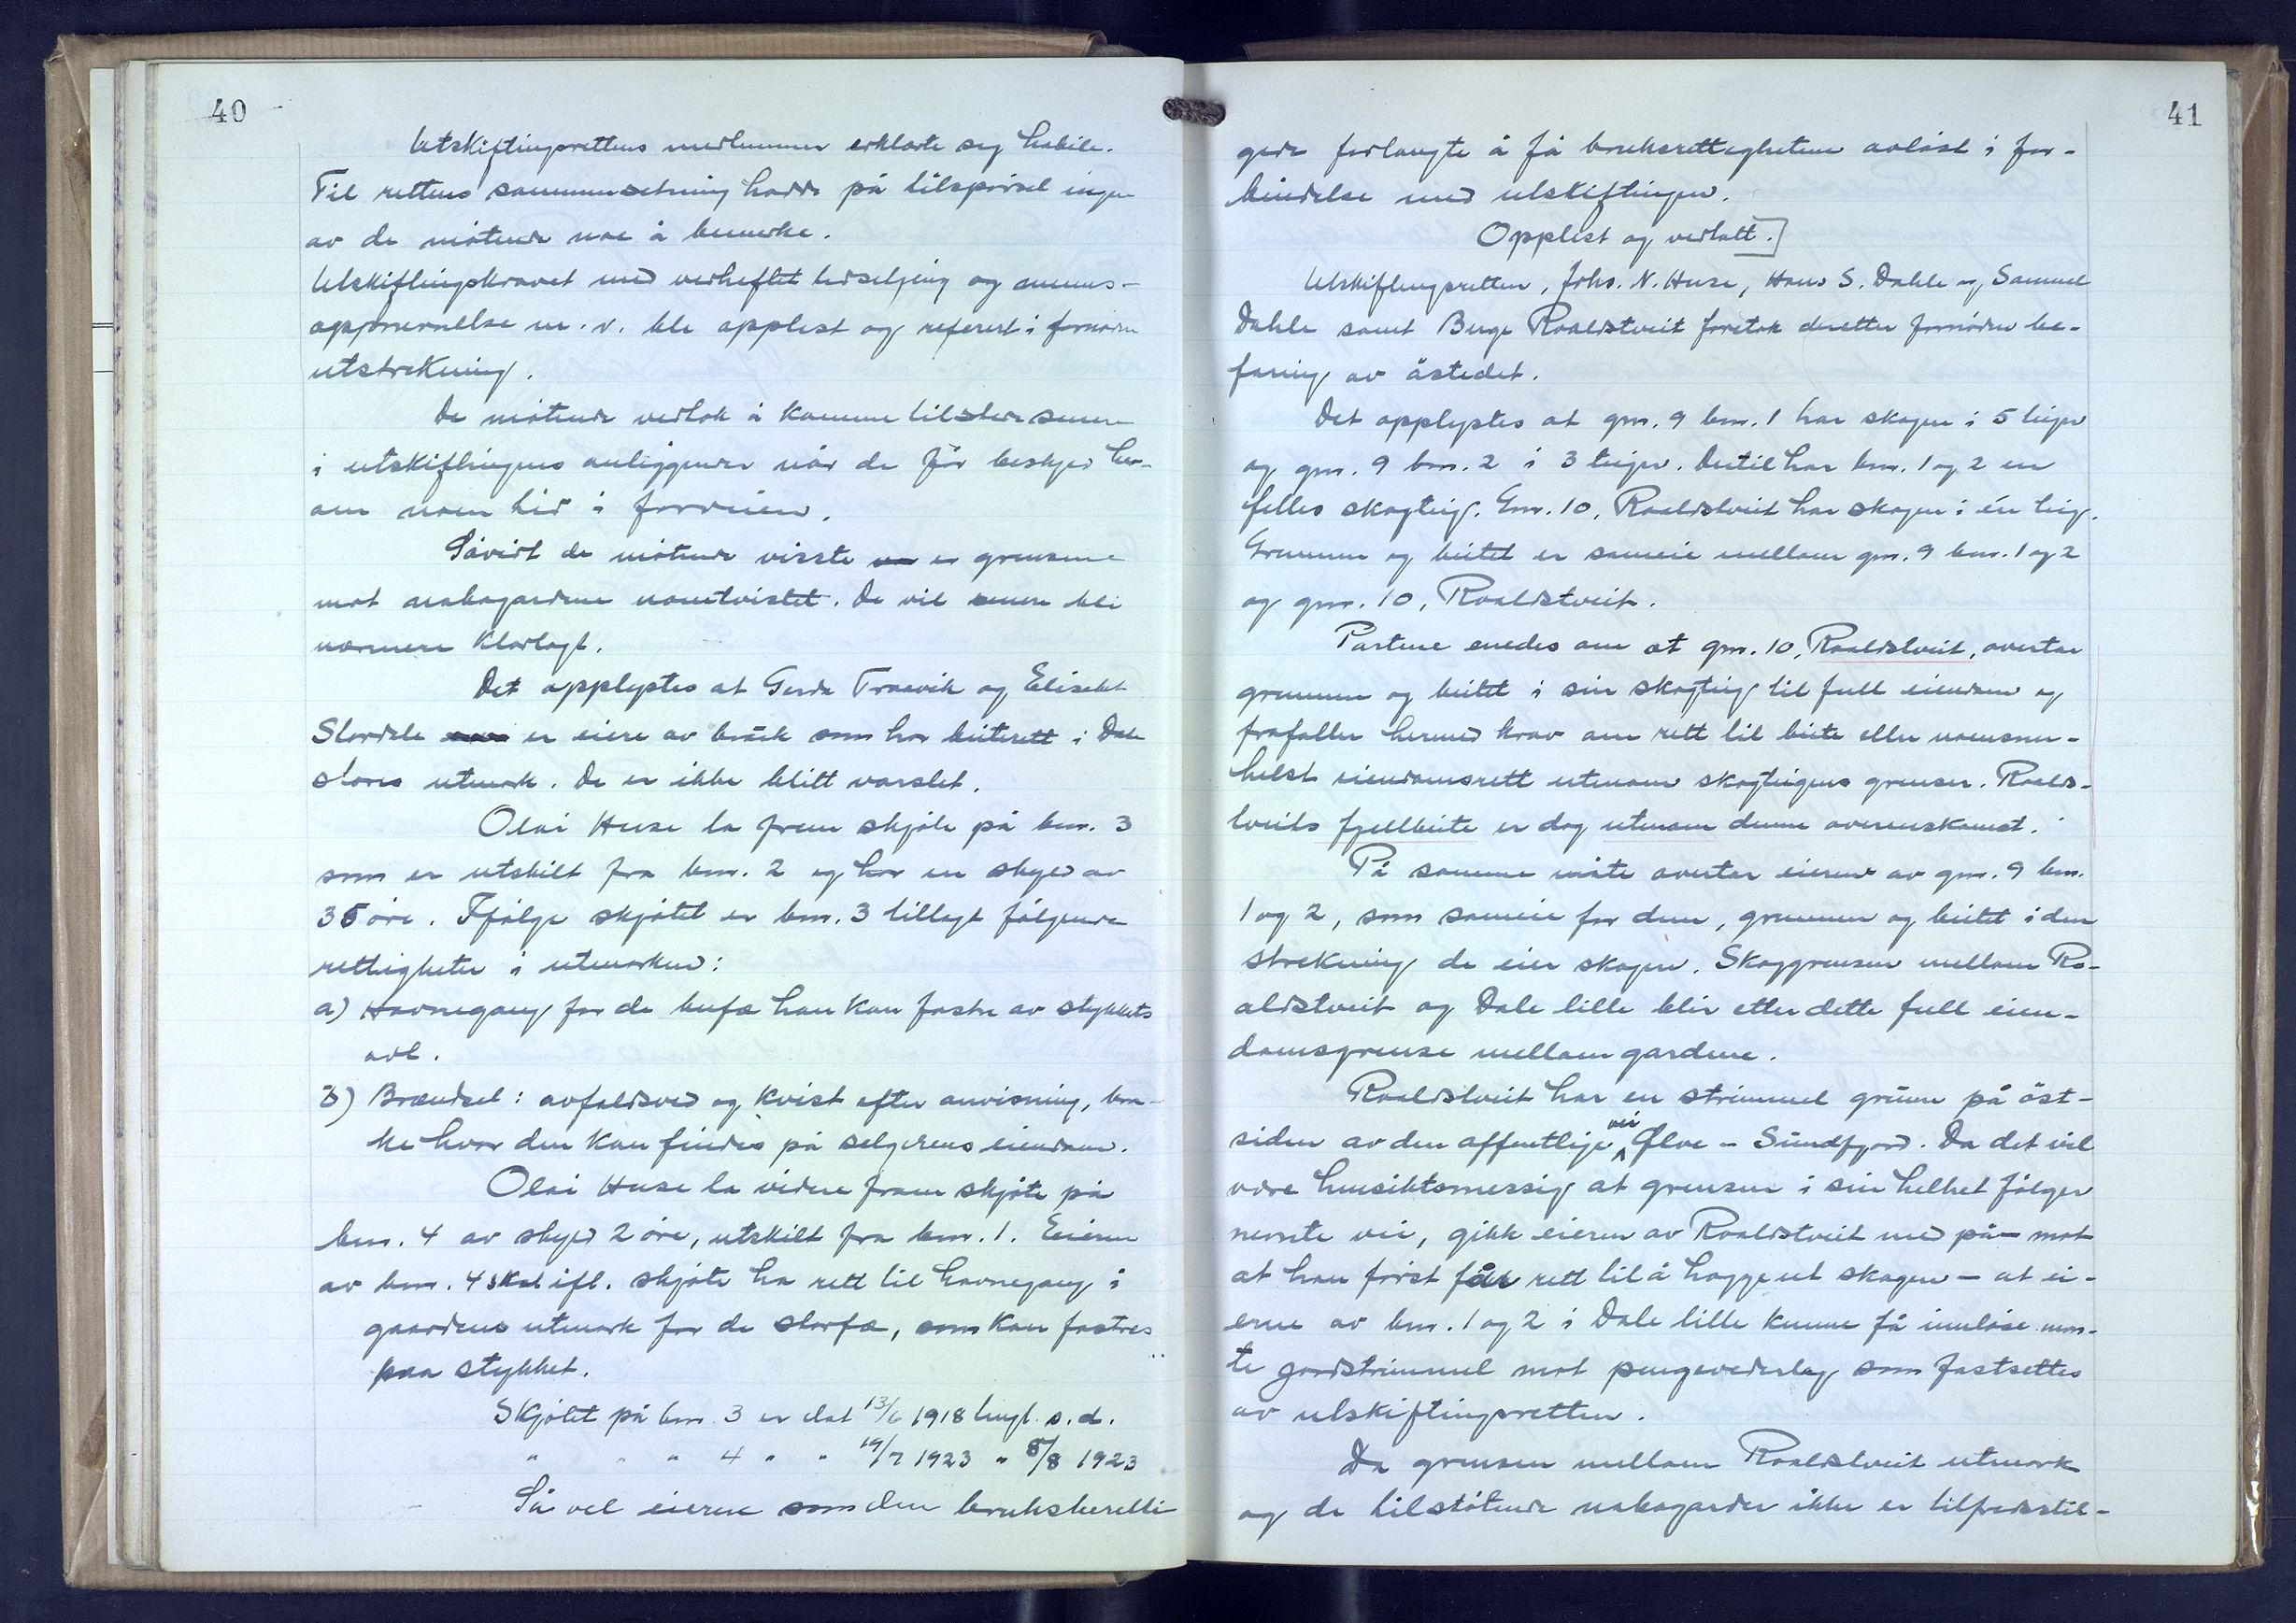 40
Utskiftingsrettens medlemmer erklærte seg habile.
Til rettens sammensetning hadde på tilspørsel ingen
av de møtende noe å bemerke.
Utskiftingskravet med vedheftet og
m. v. ble opplest og referert i fornøden
utstrekning.
De møtende vedtok å komme tilstede senere
i utskiftingens anliggender når de får beskjed her-
om noen tid i forveien.
Såvidt de møtende visste er grensene
mot nabogardene uomtvistet. De vil senere bli
nærmere klarlagt.
Det opplystes at Gerda Traavik og Elisabet
Stordale er eiere av bruk som har beiterett i Dale
stores utmark. De er ikke blitt varslet.
Olai Huse la frem skjøte på bnr. 3
som er utskilt fra bnr. 2 og har en skyld av
35 øre. Ifølge skjøtet er bnr. 3 tillagt følgende
rettigheter i utmarken:
a) Havnegang for de bufæ han kan fostre av stykkets
avl.
b) Brændsel: avfaldsved og kvist efter anvisning, bra-
ke hvor den kan findes på selgerens eiendom.
Olai Huse la videre fram skjøte på
bnr. 4 av skyld 2 øre, utskilt fra bnr. 1. Eieren
av bnr. 4 skal ifl. skjøte ha rett til havnegang i
gaardens utmark for de storfæ, som kan fostres
paa stykket.
Skjøtet på bnr. 3 er dat 13/6 1918 tingl. s. d.
" " " 4 " " 19/7 1923 " 8/8 1923
Så vel eierne som den bruksberetti-
41
gede forlangte å få bruksrettighetene avløst i for-
bindelse med utskiftingen.
Opplest og vedtatt.]
Utskiftingsretten, Johs. N. Huse, Hans S. Dahle og Samuel
Dahle samt Berge Roaldstveit foretok deretter fornøden be-
faring av åstedet.
Det opplystes at gnr. 9 bnr. 1 har skogen i 5 teiger
og gnr. 9 bnr. 2 i 3 teiger. Dertil har bnr. 1 og 2 en
felles skogteig. Gnr. 10, Roaldstveit har skogen i én teig.
Grunnen og beitet er sameie mellom gnr. 9 bnr. 1 og 2
og gnr. 10, Roaldstveit.
Partene enedes om at gnr. 10, Roaldstveit, overtar
grunnen og beitet i sin skogteig til full eiendom og
frafaller hermed krav om rett til beite eller noensom-
helst eiendomsrett utenom skogteigens grenser. Roalds-
tveits fjellbeite er dog utenom denne overenskomst.
På samme måte overtar eierne av gnr. 9 bnr.
1 og 2, som sameie for dem, grunnen og beitet i den
strekning de eier skogen. Skoggrensen mellom Ro-
aldstveit og Dale lille blir etter dette full eien-
domsgrense mellom gardene.
Roaldstveit har en strimmel grunn på øst-
siden av den offentlige vei Ølve - Sundfjord. Da det vil
være hensiktsmessig at grensen i sin helhet følger
nevnte vei, gikk eieren av Roaldstveit med på - mot
at han først får rett til å hogge ut skogen - at ei-
erne av bnr. 1 og 2 i Dale lille kunne få innløse nevn-
te jordstrimmel mot pengevederlag som fastsettes
av utskiftingsretten.
Da grensen mellom Roaldstveit utmark
og de tilstøtende nabogarder ikke er tilfredsstil-